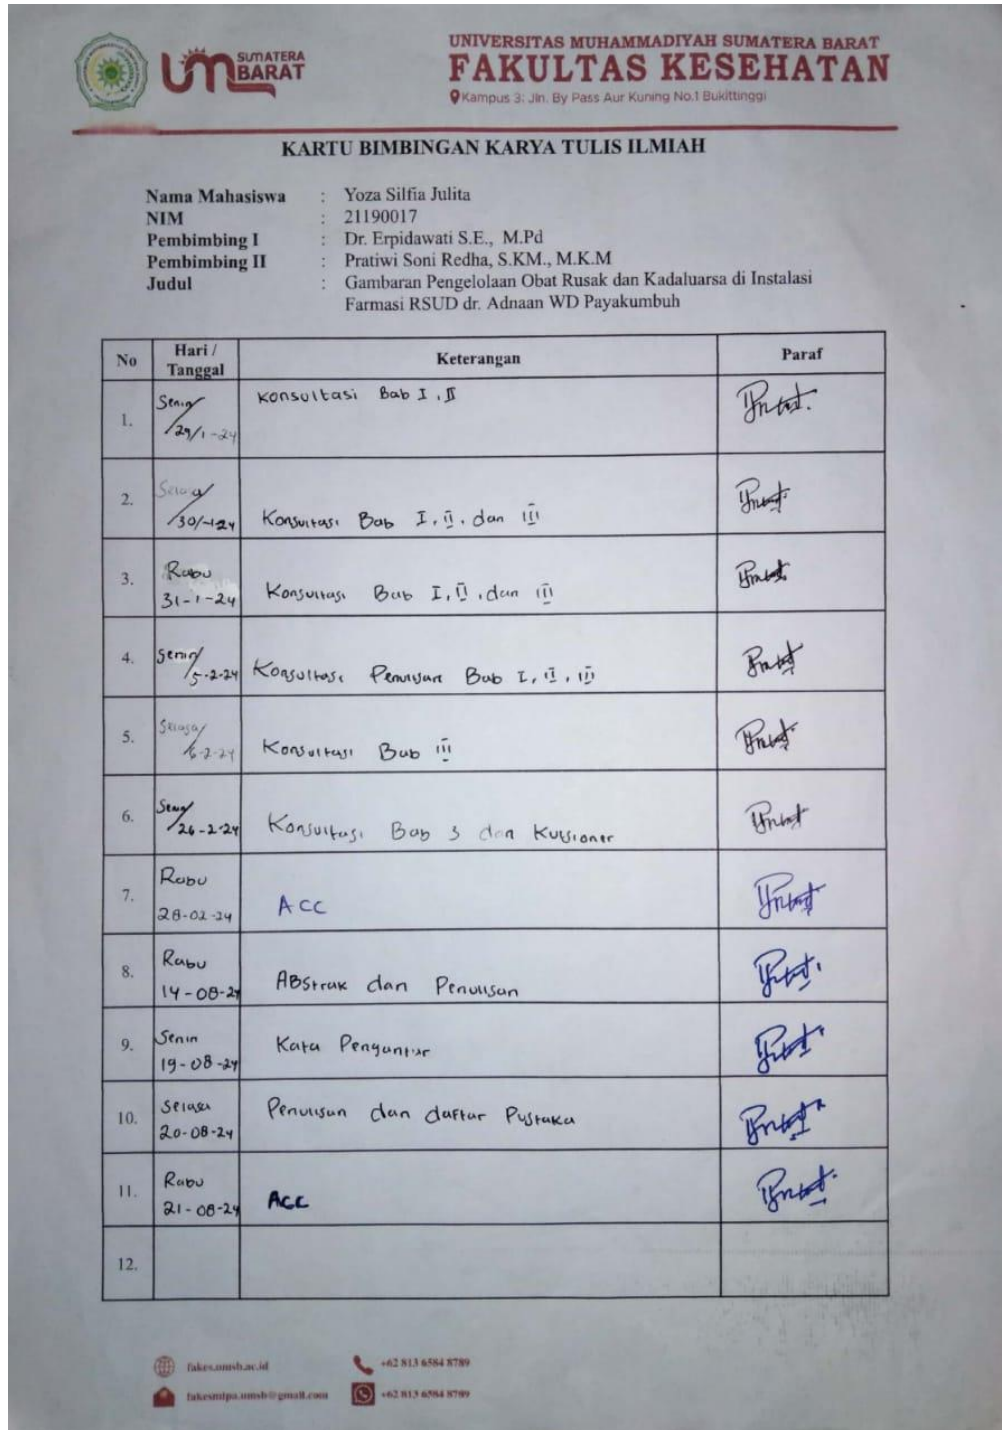 UM SUMATERA
BARAT
UNIVERSITAS MUHAMMADIYAH SUMATERA BARAT
FAKULTAS KESEHATAN
Kampus 3: Jln. By Pass Aur Kuning No.1 Bukittinggi
KARTU BIMBINGAN KARYA TULIS ILMIAH
Nama Mahasiswa : Yoza Silfia Julita
NIM : 21190017
Pembimbing I : Dr. Erpidawati S.E., M.Pd
Pembimbing II : Pratiwi Soni Redha, S.KM., M.K.M
Judul : Gambaran Pengelolaan Obat Rusak dan Kadaluarsa di Instalasi
Farmasi RSUD dr. Adnaan WD Payakumbuh
No Hari / Tanggal Keterangan Paraf
1. Senin/ 29/1-24 Konsultasi Bab I, II
2. Selasa/ 30/-1-24 Konsultasi Bab I, II, dan III
3. Rabu 31-1-24 Konsultasi Bab I, II, dan III
4. Senin/ 5-2-24 Konsultasi Penulisan Bab I, II, III
5. Selasa/ 6-2-24 Konsultasi Bab III
6. Senin/ 26-2-24 Konsultasi Bab 3 dan Kuisioner
7. Rabu 28-02-24 ACC
8. Rabu 14-08-24 ABstrak dan Penulisan
9. Senin 19-08-24 Kata Pengantar
10. Selasa 20-08-24 Penulisan dan daftar Pustaka
11. Rabu 21-08-24 ACC
12.
fakes.umsb.ac.id +62 813 6584 8789
fakesmipa.umsb@gmail.com +62 813 6584 8789